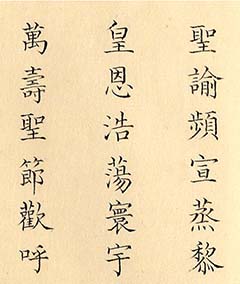 聖諭頻宣蒸黎
皇恩浩蕩寰宇
萬壽聖節歡呼